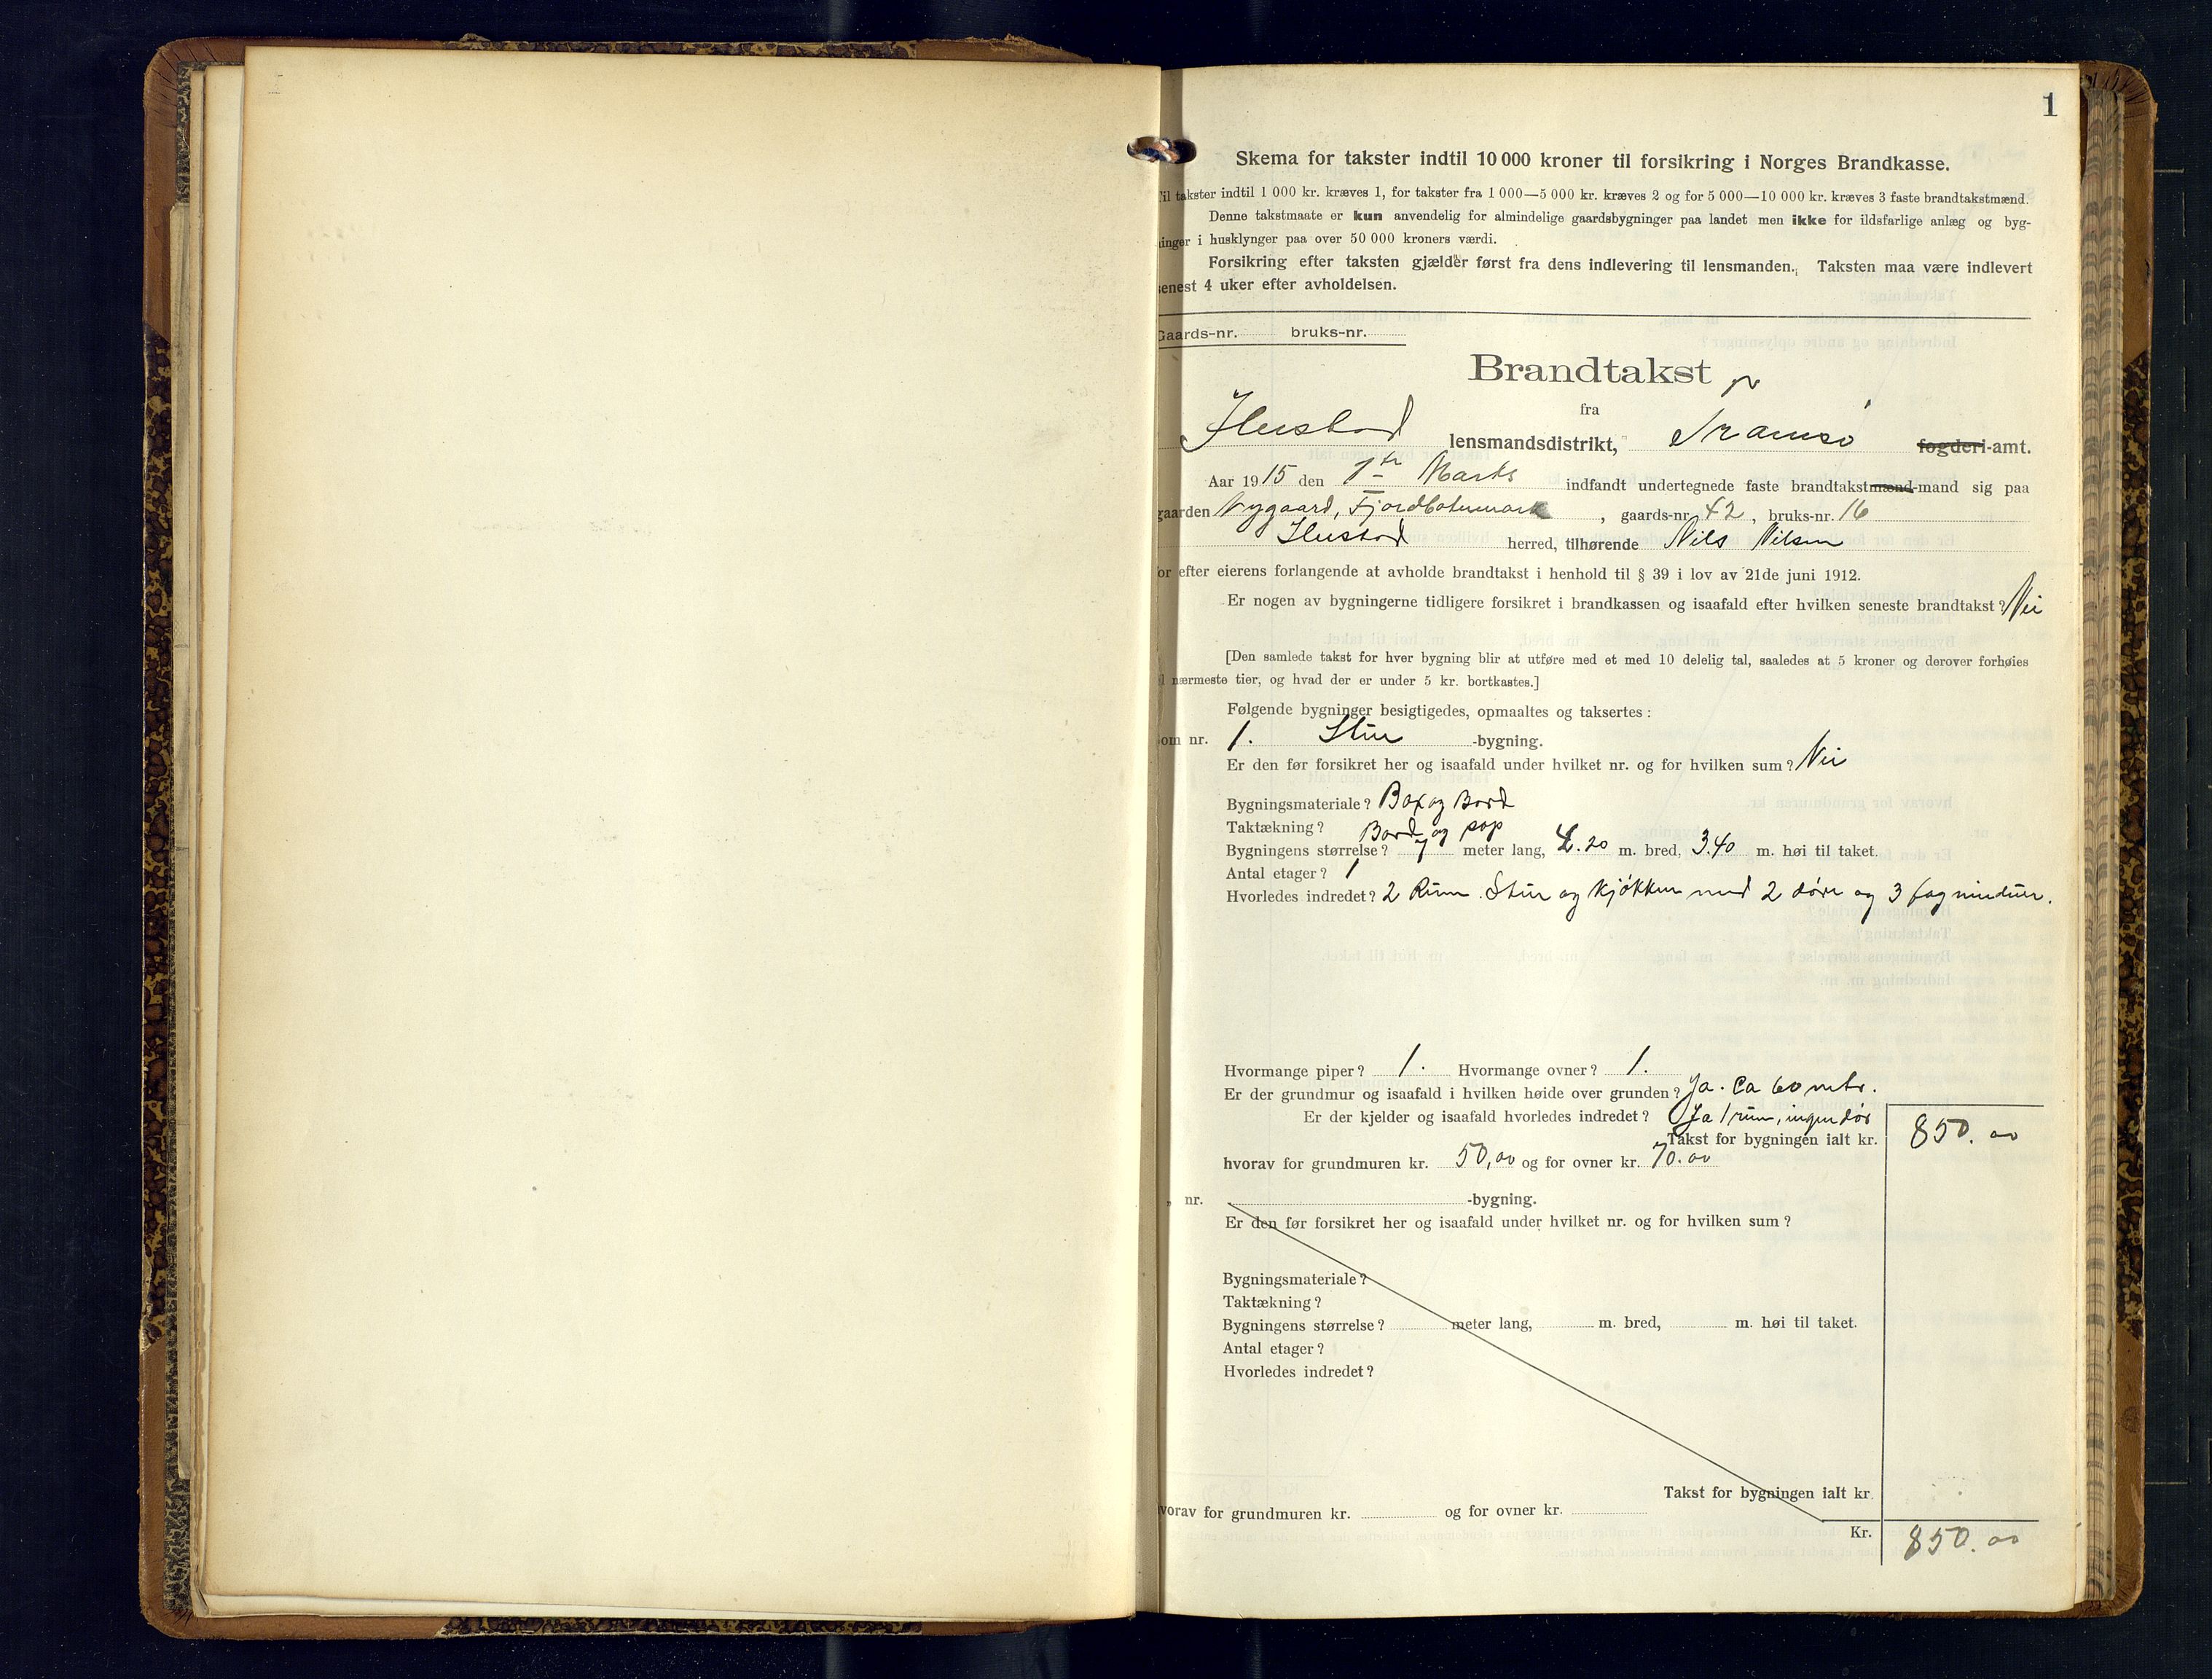 1
Skema for takster indtil 10 000 kroner til forsikring i Norges Brandkasse.
Til takster indtil 1 000 kr. kræves 1, for takster fra 1 000—5 000 kr. kræves 2 og for 5 000—10 000 kr. kræves 3 faste brandtakstmænd.
Denne takstmaate er kun anvendelig for almindelige gaardsbygninger paa landet men ikke for ildsfarlige anlæg og byg-
inger i husklynger paa over 50 000 kroners værdi.
Forsikring efter taksten gjælder først fra dens indlevering til lensmanden. Taksten maa være indlevert
senest 4 uker efter avholdelsen.
Gaards-nr. bruks-nr.
Brandtakst
fra
lensmandsdistrikt, Tromsø fogderi-amt.
Aar 1915 den 1ste Marts indfandt undertegnede faste brandtakstmænd-mand sig paa
gaarden Nygaard, Fjordbotnmark, gaards-nr. 42, bruks-nr. 16
herred, tilhørende Nils Nilsen
or efter eierens forlangende at avholde brandtakst i henhold til § 39 i lov av 21de juni 1912.
Er nogen av bygningerne tidligere forsikret i brandkassen og isaafald efter hvilken seneste brandtakst? Nei
[Den samlede takst for hver bygning blir at utføre med et med 10 delelig tal, saaledes at 5 kroner og derover forhøies
l nærmeste tier, og hvad der er under 5 kr. bortkastes.]
Følgende bygninger besigtigedes, opmaaltes og taksertes:
om nr. 1. Stue -bygning.
Er den før forsikret her og isaafald under hvilket nr. og for hvilken sum? Nei
Bygningsmateriale? og Bord
Taktækning? Bord og pap
Bygningens størrelse? 7 meter lang, 4.20 m. bred, 3.40 m. høi til taket.
Antal etager? 1
Hvorledes indredet? 2 Rum. Stue og kjøkken med 2 døre og 3 fag vinduer.
Hvormange piper? 1. Hvormange ovner? 1.
Er der grundmur og isaafald i hvilken høide over grunden? Ja. Ca 60 mtr.
Er der kjelder og isaafald hvorledes indredet? Ja 1 rum, ingen dør
Takst for bygningen ialt kr. 850.00
hvorav for grundmuren kr. 50,00 og for ovner kr. 70.00
„ nr. -bygning.
Er den før forsikret her og isaafald under hvilket nr. og for hvilken sum?
Bygningsmateriale?
Taktækning?
Bygningens størrelse? meter lang, m. bred, m. høi til taket.
Antal etager?
Hvorledes indredet?
Takst for bygningen ialt kr.
vorav for grundmuren kr. og for ovner kr.
Kr. 850.00